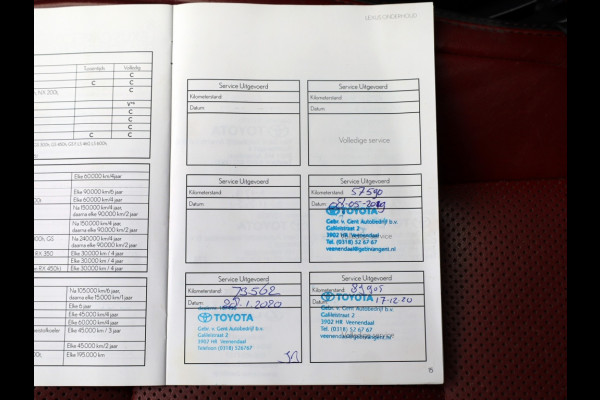 LEXUS ONDERHOUD
Tussentijds Volledig
C
C C
NX 300h C
V**
C
C
C
C C
Elke 60.000 km/4jaar
Elke 90.000 km/6 jaar
Elke 60.000 km/4 jaar
Na 150.000 km/4 jaar,
daarna elke 90.000 km/2 jaar
Na 150.000 km/4 jaar,
daarna elke 90.000 km/2 jaar
GS Na 240.000 km/4 jaar
daarna elke 90.000 km/2 jaar
RX 350 Elke 30.000 km / 4 jaar
RX 450h) Elke 30.000 km / 4 jaar
Na 105.000 km/6 jaar,
daarna elke 15.000 km/1 jaar
Elke 6 jaar
Elke 45.000 km/4 jaar
Elke 60.000 km/4 jaar
Elke 45.000 km / 3 jaar
Elke 45.000 km/2 jaar
Elke 195.000 km
Service Uitgevoerd
Kilometerstand:
Datum:
Service Uitgevoerd
Kilometerstand:
Datum:
Volledige service
Service Uitgevoerd
Kilometerstand:
Datum:
Service Uitgevoerd
Kilometerstand: 57590
Datum: 08-05-2019
TOYOTA
Gebr. v. Gent Autobedrijf b.v.
Galileistraat 2
3902 HR Veenendaal
Tel. (0318) 52 67 67
veenendaal@gebrvangent.nl
Service Uitgevoerd
Kilometerstand: 73.562
Datum: 22.1.2020
TOYOTA
Gebr. v. Gent Autobedrijf b.v.
Galileistraat 2
3902 HR Veenendaal
Telefoon (0318) 526767
Service Uitgevoerd
Kilometerstand: 83905
Datum: 17-12-20
TOYOTA
Gebr. v. Gent Autobedrijf b.v.
Galileistraat 2
3902 HR Veenendaal
Tel. (0318) 52 67 67
veenendaal@gebrvangent.nl
15